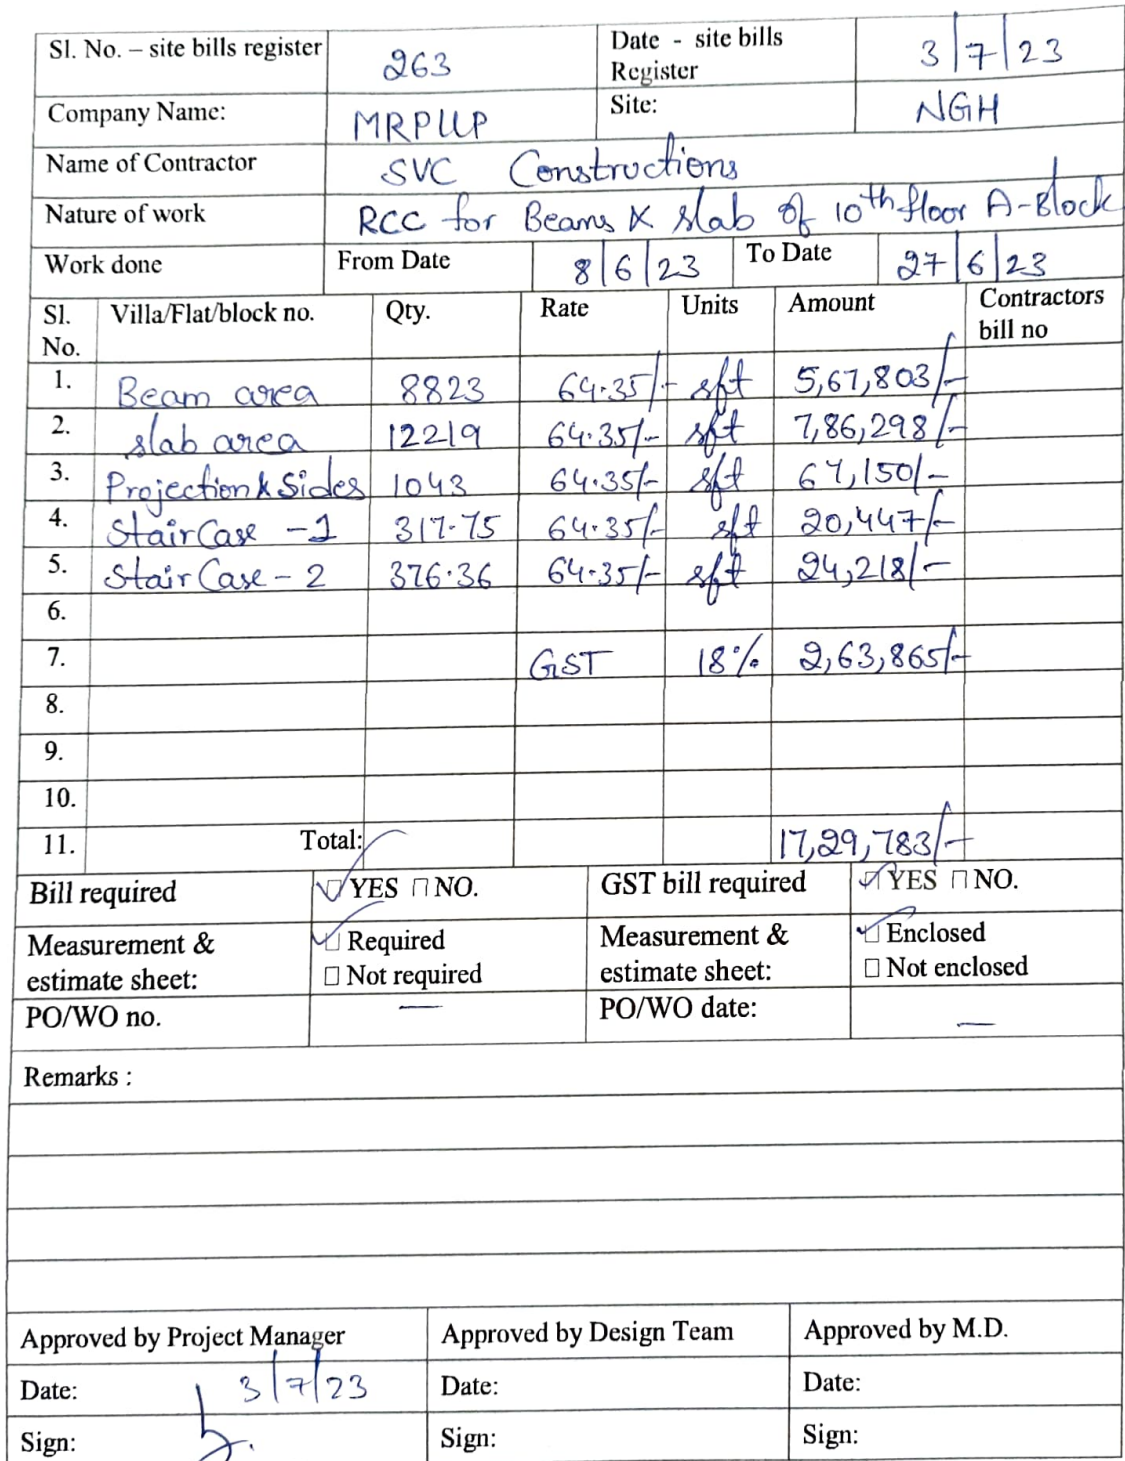 Sl. No. – site bills register 263 Date - site bills Register 3/7/23
Company Name: MRPLLP Site: NGH
Name of Contractor SVC Constructions
Nature of work RCC for Beams & slab of 10th floor A-Block
Work done From Date 8/6/23 To Date 27/6/23
Sl. No. Villa/Flat/block no. Qty. Rate Units Amount Contractors bill no
1. Beam area 8823 64.35/- sft 5,67,803/-
2. slab area 12219 64.35/- sft 7,86,298/-
3. Projection & Sides 1043 64.35/- sft 67,150/-
4. StairCase -1 317.75 64.35/- sft 20,447/-
5. StairCase - 2 376.36 64.35/- sft 24,218/-
6.
7. GST 18% 2,63,865/-
8.
9.
10.
11. Total: 17,29,783/-
Bill required ☑ YES □ NO. GST bill required ☑ YES □ NO.
Measurement & estimate sheet: ☑ Required □ Not required Measurement & estimate sheet: ☑ Enclosed □ Not enclosed
PO/WO no. — PO/WO date: —
Remarks :
Approved by Project Manager Approved by Design Team Approved by M.D.
Date: 3/7/23 Date: Date:
Sign: Sign: Sign: